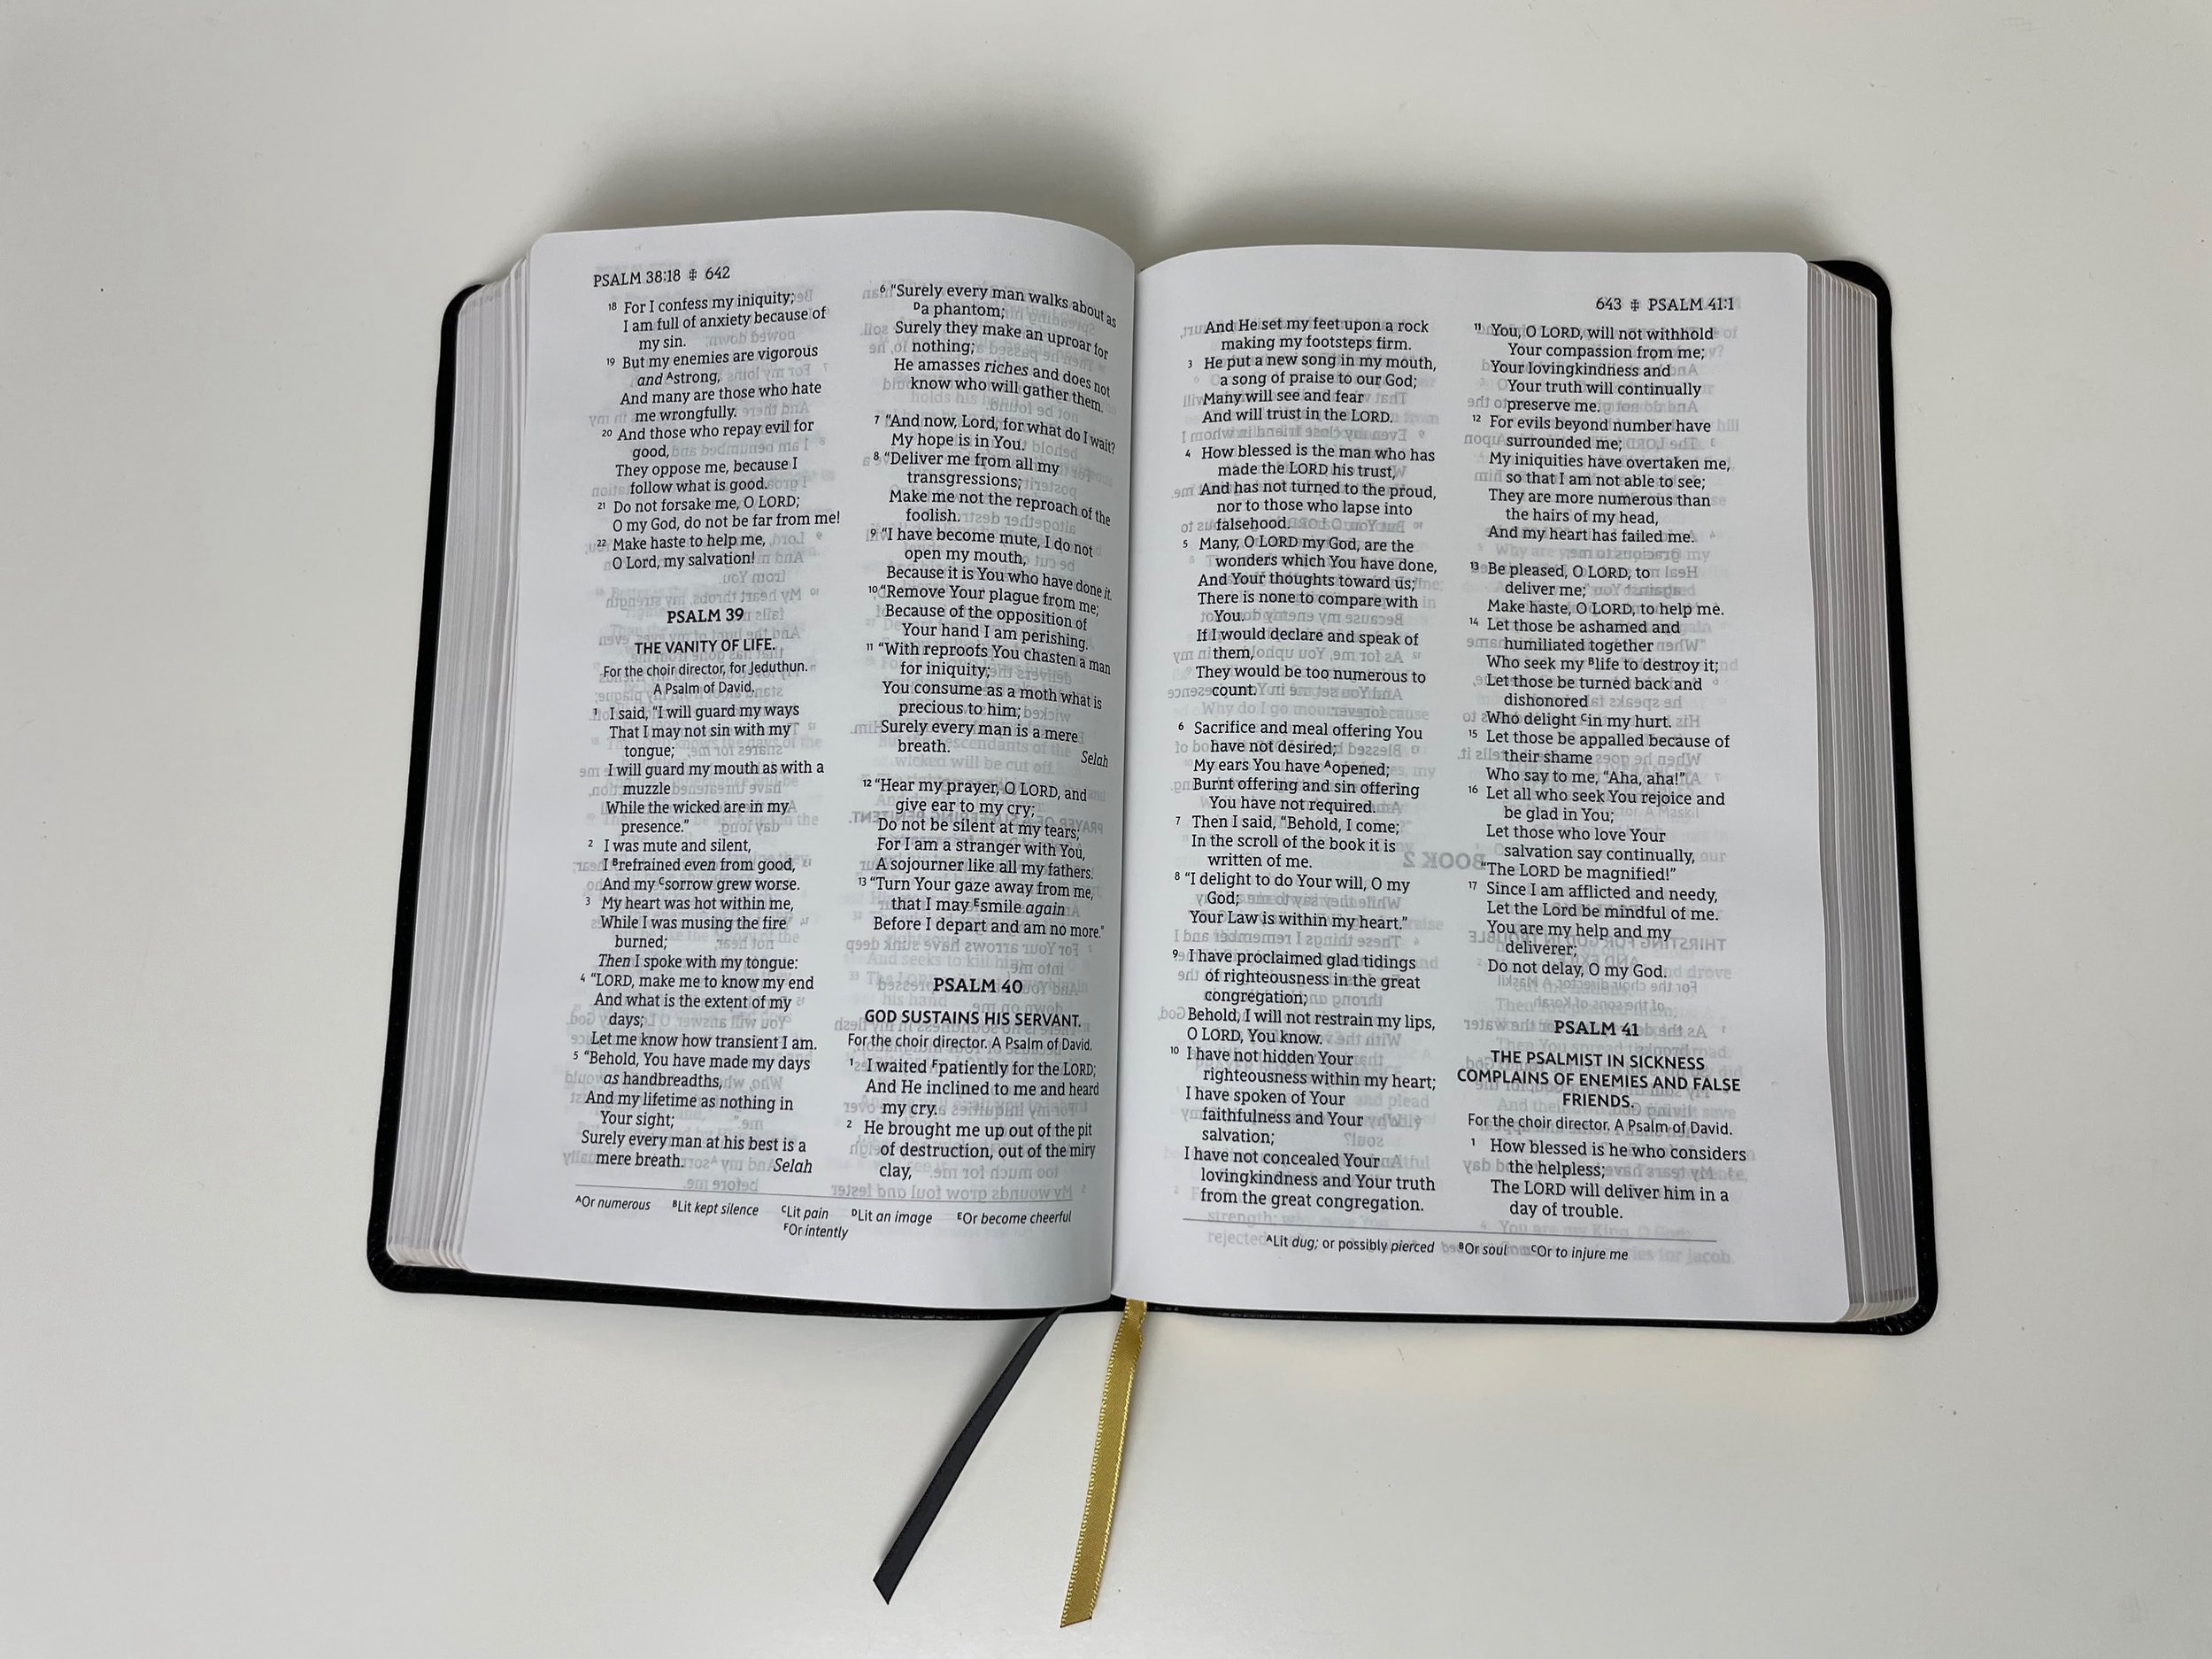 PSALM 38:18 ⁜ 642
18 For I confess my iniquity;
I am full of anxiety because of
my sin.
19 But my enemies are vigorous
and Astrong,
And many are those who hate
me wrongfully.
20 And those who repay evil for
good,
They oppose me, because I
follow what is good.
21 Do not forsake me, O LORD;
O my God, do not be far from me!
22 Make haste to help me,
O Lord, my salvation!
PSALM 39
THE VANITY OF LIFE.
For the choir director, for Jeduthun.
A Psalm of David.
1 I said, “I will guard my ways
That I may not sin with my
tongue;
I will guard my mouth as with a
muzzle
While the wicked are in my
presence.”
2 I was mute and silent,
I Brefrained even from good,
And my Csorrow grew worse.
3 My heart was hot within me,
While I was musing the fire
burned;
Then I spoke with my tongue:
4 “LORD, make me to know my end
And what is the extent of my
days;
Let me know how transient I am.
5 “Behold, You have made my days
as handbreadths,
And my lifetime as nothing in
Your sight;
Surely every man at his best is a
mere breath. Selah
6 “Surely every man walks about as
Da phantom;
Surely they make an uproar for
nothing;
He amasses riches and does not
know who will gather them.
7 “And now, Lord, for what do I wait?
My hope is in You.
8 “Deliver me from all my
transgressions;
Make me not the reproach of the
foolish.
9 “I have become mute, I do not
open my mouth,
Because it is You who have done it.
10 “Remove Your plague from me;
Because of the opposition of
Your hand I am perishing.
11 “With reproofs You chasten a man
for iniquity;
You consume as a moth what is
precious to him;
Surely every man is a mere
breath. Selah
12 “Hear my prayer, O LORD, and
give ear to my cry;
Do not be silent at my tears;
For I am a stranger with You,
A sojourner like all my fathers.
13 “Turn Your gaze away from me,
that I may Esmile again
Before I depart and am no more.”
PSALM 40
GOD SUSTAINS HIS SERVANT.
For the choir director. A Psalm of David.
1 I waited Fpatiently for the LORD;
And He inclined to me and heard
my cry.
2 He brought me up out of the pit
of destruction, out of the miry
clay,
AOr numerous BLit kept silence CLit pain DLit an image EOr become cheerful
FOr intently
643 ⁜ PSALM 41:1
And He set my feet upon a rock
making my footsteps firm.
3 He put a new song in my mouth,
a song of praise to our God;
Many will see and fear
And will trust in the LORD.
4 How blessed is the man who has
made the LORD his trust,
And has not turned to the proud,
nor to those who lapse into
falsehood.
5 Many, O LORD my God, are the
wonders which You have done,
And Your thoughts toward us;
There is none to compare with
You.
If I would declare and speak of
them,
They would be too numerous to
count.
6 Sacrifice and meal offering You
have not desired;
My ears You have Aopened;
Burnt offering and sin offering
You have not required.
7 Then I said, “Behold, I come;
In the scroll of the book it is
written of me.
8 “I delight to do Your will, O my
God;
Your Law is within my heart.”
9 I have proclaimed glad tidings
of righteousness in the great
congregation;
Behold, I will not restrain my lips,
O LORD, You know.
10 I have not hidden Your
righteousness within my heart;
I have spoken of Your
faithfulness and Your
salvation;
I have not concealed Your
lovingkindness and Your truth
from the great congregation.
11 You, O LORD, will not withhold
Your compassion from me;
Your lovingkindness and
Your truth will continually
preserve me.
12 For evils beyond number have
surrounded me;
My iniquities have overtaken me,
so that I am not able to see;
They are more numerous than
the hairs of my head,
And my heart has failed me.
13 Be pleased, O LORD, to
deliver me;
Make haste, O LORD, to help me.
14 Let those be ashamed and
humiliated together
Who seek my Blife to destroy it;
Let those be turned back and
dishonored
Who delight Cin my hurt.
15 Let those be appalled because of
their shame
Who say to me, “Aha, aha!”
16 Let all who seek You rejoice and
be glad in You;
Let those who love Your
salvation say continually,
“The LORD be magnified!”
17 Since I am afflicted and needy,
Let the Lord be mindful of me.
You are my help and my
deliverer;
Do not delay, O my God.
PSALM 41
THE PSALMIST IN SICKNESS
COMPLAINS OF ENEMIES AND FALSE
FRIENDS.
For the choir director. A Psalm of David.
1 How blessed is he who considers
the helpless;
The LORD will deliver him in a
day of trouble.
ALit dug; or possibly pierced BOr soul COr to injure me